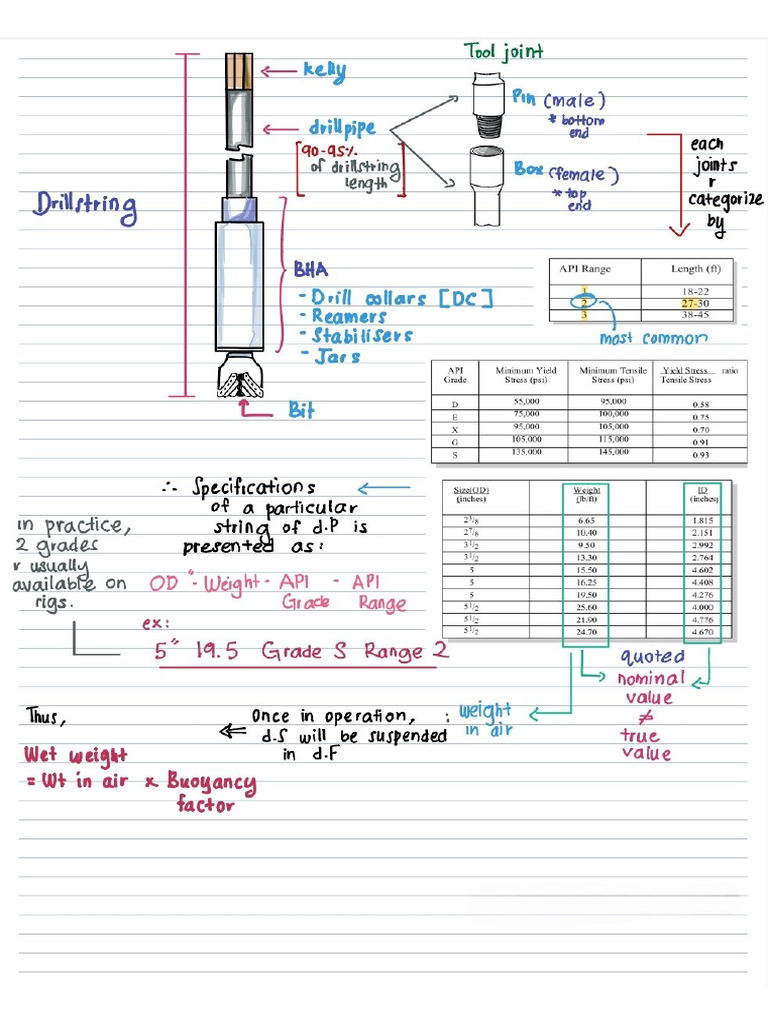 Tool joint
kelly
Pin (male)
* bottom
end
drillpipe
[90-95%
of drillstring
length]
Box (female)
* top
end
each
joints
r
categorize
by
Drillstring
BHA
- Drill collars [DC]
- Reamers
- Stabilisers
- Jars
Bit
API Range Length (ft)
1 18-22
2 27-30
3 38-45
most common
API Grade Minimum Yield Stress (psi) Minimum Tensile Stress (psi) Yield Stress ratio Tensile Stress
D 55,000 95,000 0.58
E 75,000 100,000 0.75
X 95,000 105,000 0.70
G 105,000 115,000 0.91
S 135,000 145,000 0.93
∴ Specifications
of a particular
string of d.P is
presented as:
in practice,
2 grades
r usually
available on
rigs.
OD" - Weight - API - API
Grade Range
ex:
5" 19.5 Grade S Range 2
Size(OD) (inches) Weight (lb/ft) ID (inches)
2 3/8 6.65 1.815
2 7/8 10.40 2.151
3 1/2 9.50 2.992
3 1/2 13.30 2.764
5 15.50 4.602
5 16.25 4.408
5 19.50 4.276
5 1/2 25.60 4.000
5 1/2 21.90 4.776
5 1/2 24.70 4.670
quoted
nominal
value
≠
true
value
: weight
in air
Once in operation,
d.S will be suspended
in d.F
Thus,
Wet weight
= Wt in air x Buoyancy
factor